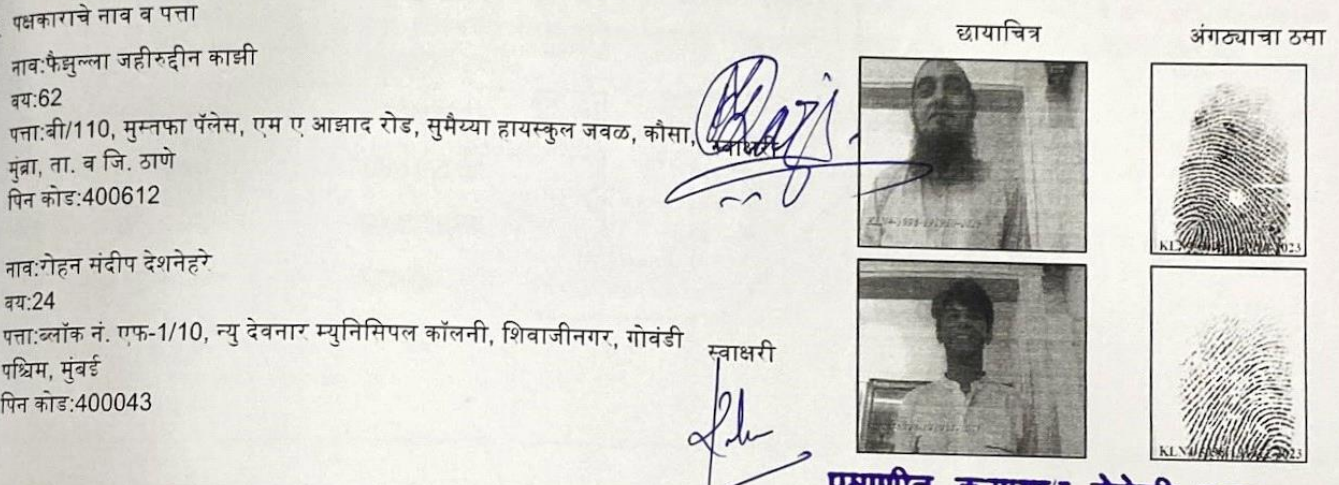 पक्षकाराचे नाव व पत्ता
छायाचित्र
अंगठ्याचा ठसा
नाव:फैझुल्ला जहीरुद्दीन काझी
वय:62
पत्ता:बी/110, मुस्तफा पॅलेस, एम ए आझाद रोड, सुमैय्या हायस्कुल जवळ, कौसा,
स्वाक्षरी
मुंब्रा, ता. व जि. ठाणे
पिन कोड:400612
नाव:रोहन संदीप देशनेहरे
वय:24
पत्ता:ब्लॉक नं. एफ-1/10, न्यु देवनार म्युनिसिपल कॉलनी, शिवाजीनगर, गोवंडी
स्वाक्षरी
पश्चिम, मुंबई
पिन कोड:400043